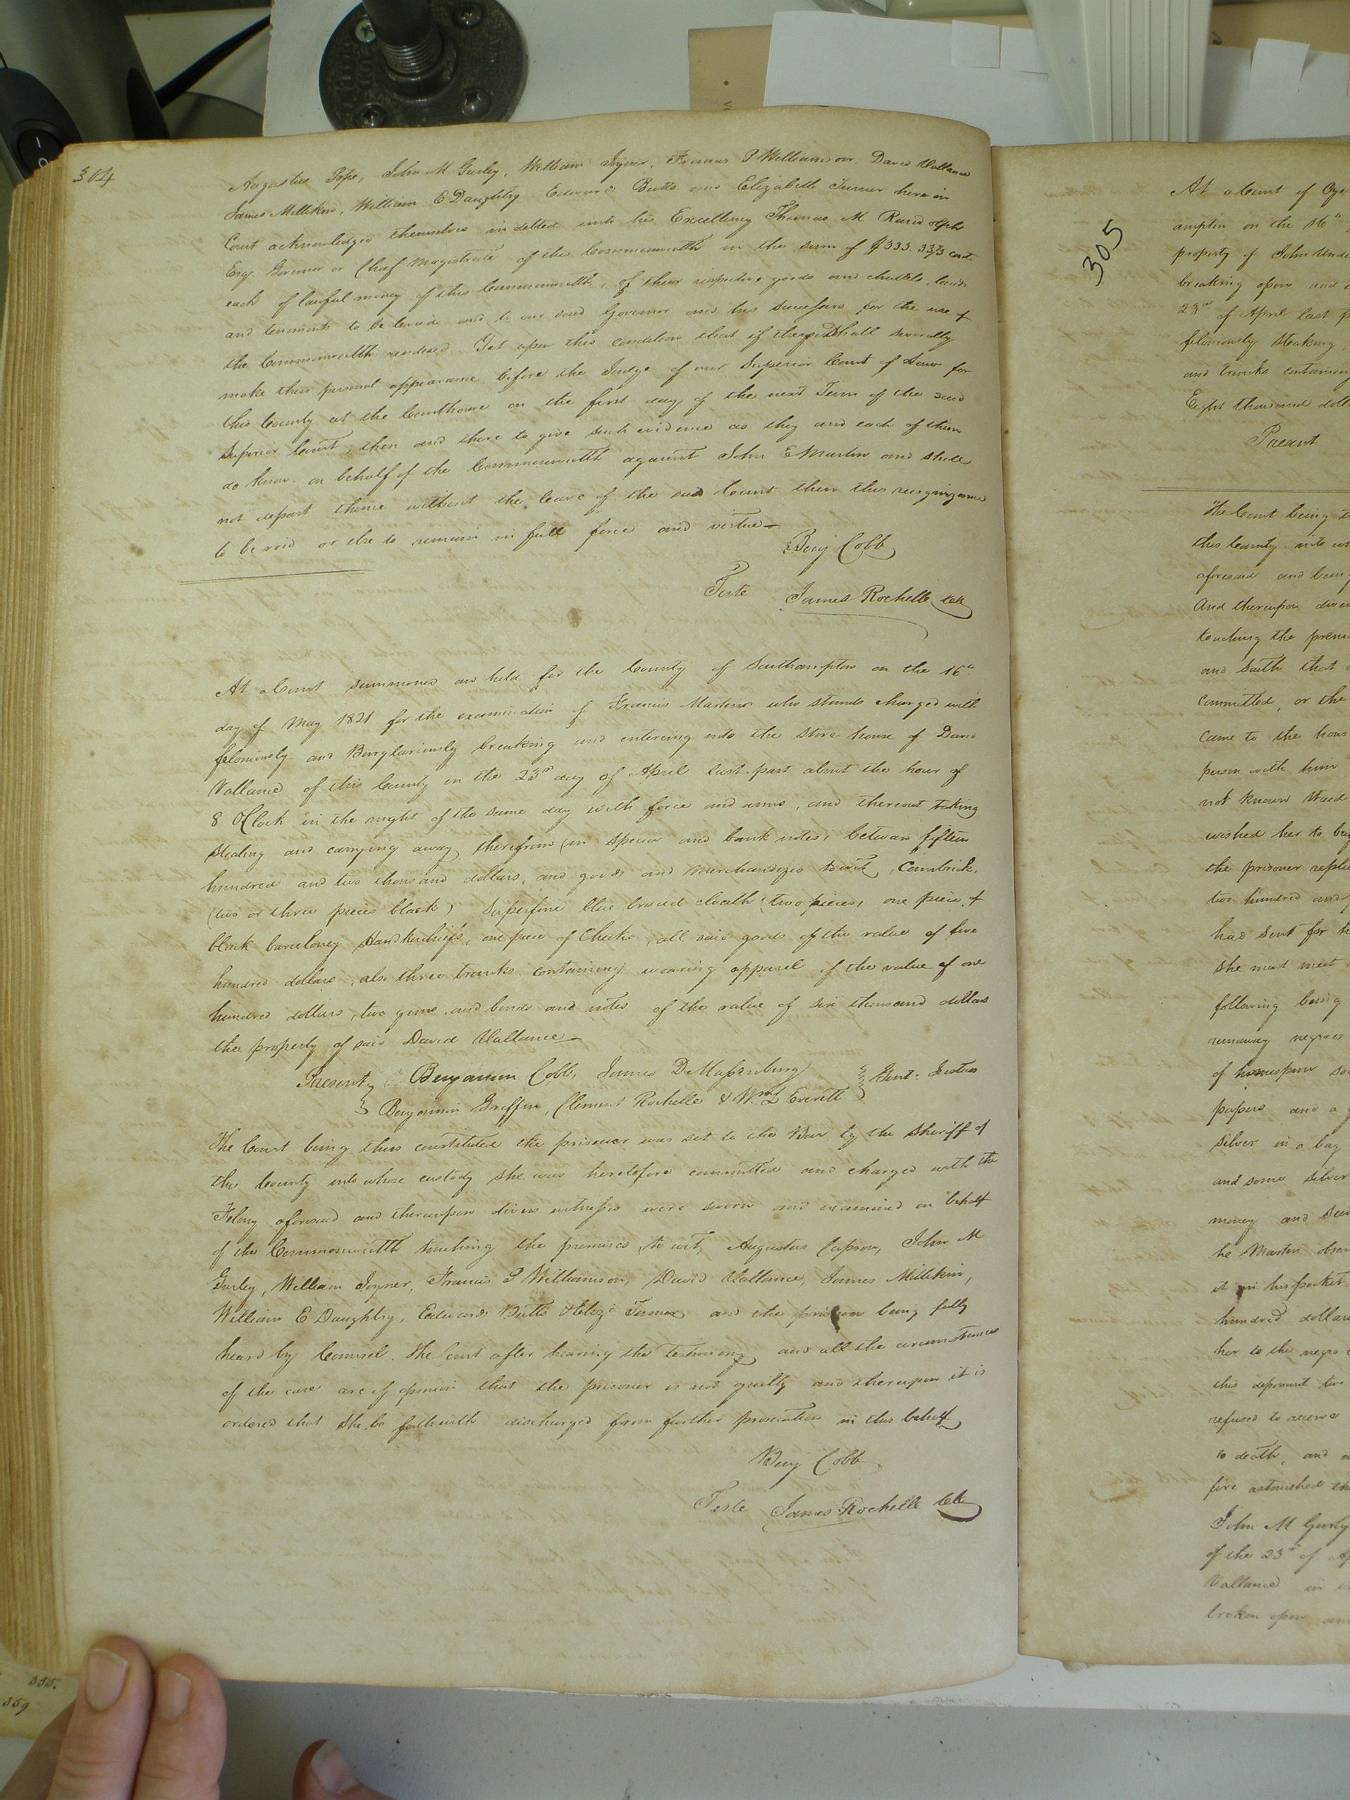 304
Augustus Pope, John M Gurley, William Joyner, Francis P Williamson, David Vallance
James Millikin, William E Daughtry Edward Butts and Elizabeth Turner here in
Court acknowledged themselves indebted unto his Excellency Thomas M Randolph
Esqr. Governor or Chief Magistrate of the Commonwealth in the sum of $333.33⅓ cents
each of lawful money of this Commonwealth, of their respective goods and chattels, lands
and tenements to be levied and to our said Governor and his successors for the use of
the Commonwealth rendered. Yet upon this condition that if they shall severally
make their personal appearance before the Judge of our Superior Court of Law for
this County at the Courthouse on the first day of the next Term of the said
Superior Court, then and there to give such evidence as they and each of them
do know on behalf of the Commonwealth against John E Martin and shall
not depart thence without the leave of the said Court then this recognizance
to be void or else to remain in full force and virtue
Benj Cobb
Teste James Rochelle Clk
At a Court summoned and held for the County of Southampton on the 16th
day of May 1821 for the examination of Francis who stands charged with
feloniously and Burglariously breaking and entering into the store house of David
Vallance of this County on the 23rd day of April last past about the hour of
8 OClock in the night of the same day with force and arms, and thereout taking
stealing and carrying away therefrom (in specie and bank notes) between fifteen
hundred and two thousand dollars, and goods and merchandizes towit, Cambrick,
(two or three pieces black) Superfine blue broad cloath (two pieces, one piece of
black barcloney Handkerchiefs, one piece of Checks, all said goods of the value of five
hundred dollars, also three trunks containing wearing apparel of the value of one
hundred dollars, two guns, and bonds and notes of the value of six thousand dollars
the property of said David Vallance
Present Benjamin Cobb, James D Massenburg
Benjamin Griffin, Clement Rochelle & Wm. Everett Gent. Justices
The Court being thus constituted the prisoner was set to the Bar by the Sheriff of
this County into whose custody she was heretofore committed and charged with the
Felony aforesaid and thereupon divers witnesses were sworn and examined on behalf
of the Commonwealth touching the premises, to wit, Augustus John M
Gurley, William Joyner, Francis P Williamson, David Vallance, James Millikin,
William E Daughtry, Edward Butts & Eliza Turner and the prisoner being fully
heard by Counsel. The Court after hearing the testimony and all the circumstances
of the case are of opinion that the prisoner is not guilty and thereupon it is
ordered that she be forthwith discharged from further prosecution in this behalf
Benj Cobb
Teste James Rochelle Clk
305
At a Court of Oye
ampton on the 16th
property of John
breaking open and
23rd of April last p
feloniously stealing
and trunks containing
Eight thousand doll
Present
The Court being t
this County into w
aforesaid and being
And thereupon diver
touching the prem
and Saith that
committed, or the
came to the hous
person with him
not known
wished her to
the prisoner repli
two hundred and
had sent for
she must meet
following being
runaway negroes
of homespun
papers and a
silver in a bag
and some silver
money and
he Martin
it in his pocket
hundred dollars
her to the negro
this deponent two
refused to receive
to death, and
five astonished
John M Gurley
of the 23rd of Ap
Vallance in
broken open an
355.
359